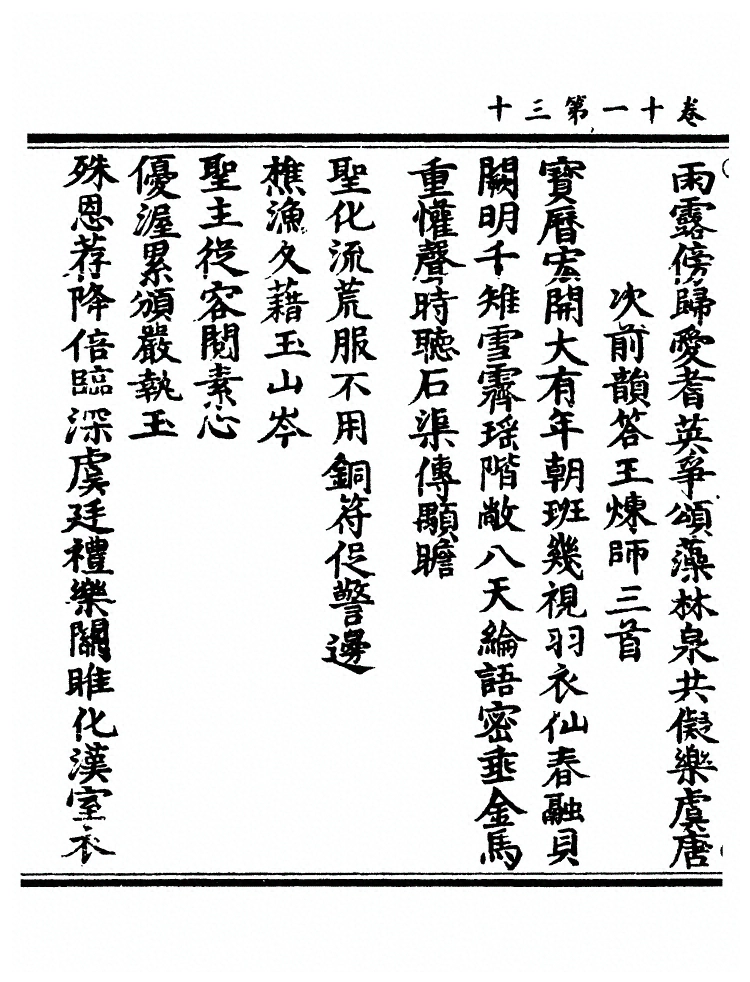 卷十一第三十
雨露傍歸愛耆英爭頌藻林泉共儗樂虞唐
次前韻答王煉師三首
寶曆宏開大有年朝班幾視羽衣仙春融貝
闕明千雉雪霽瑶階敞八天綸語密垂金馬
重懽聲時聽石渠傳顒瞻
聖化流荒服不用銅符促警邊
樵漁久藉玉山岑
聖主從容閱素心
優渥累頒嚴執玉
殊恩荐降倍臨深虞廷禮樂關雎化漢室衣